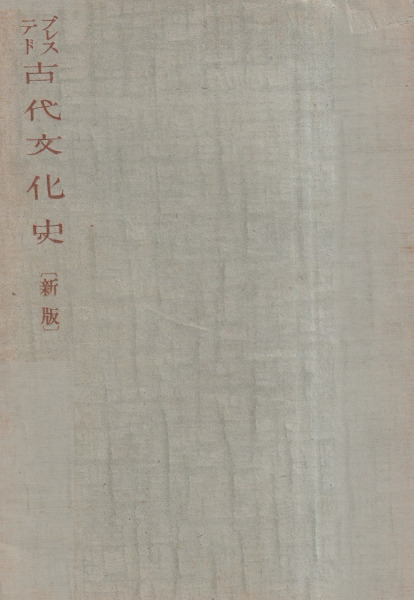 ブレス
テド
古代文化史
〔新版〕